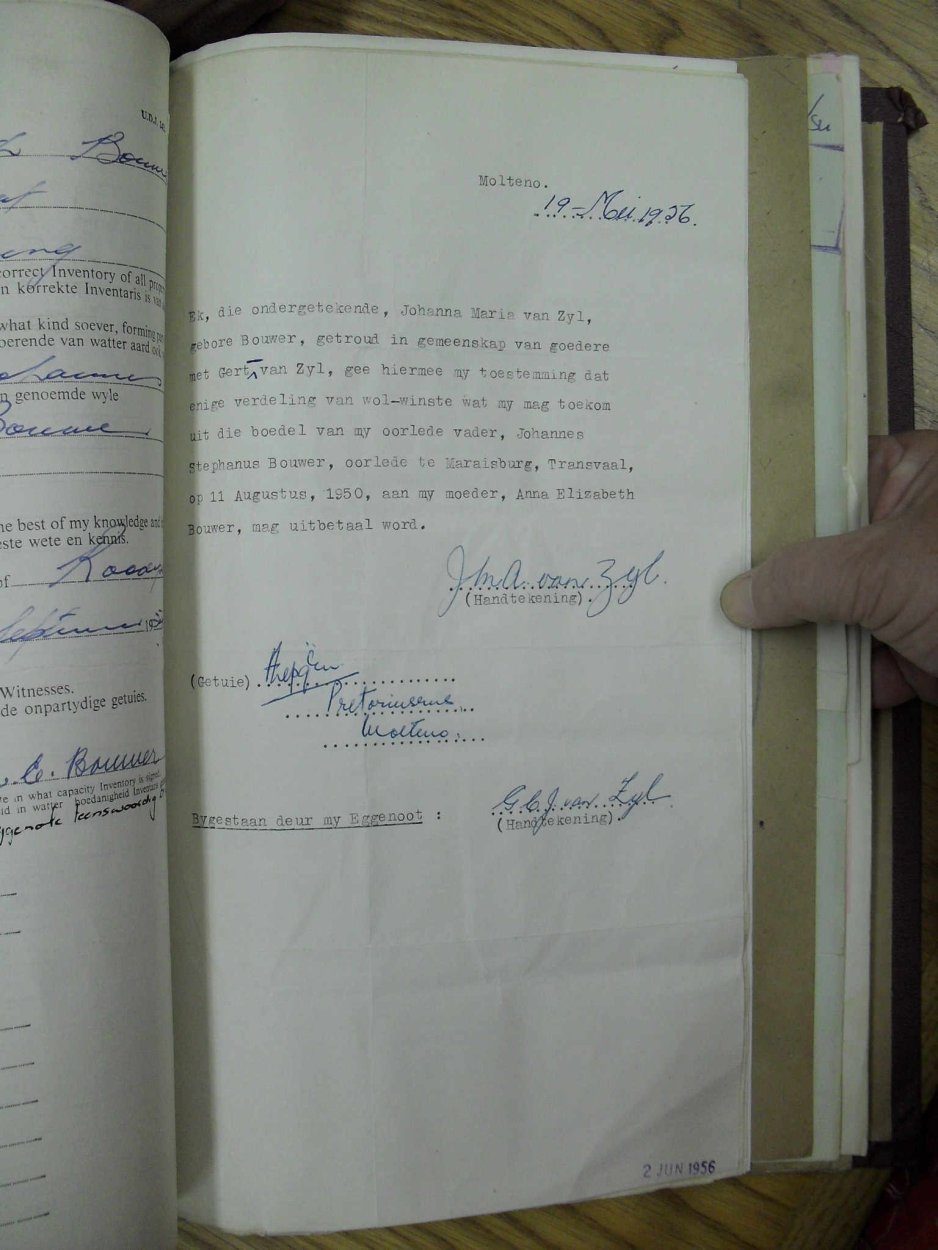 U.D.J.
Bouwer
correct Inventory of all
n korrekte Inventaris is van
what kind soever, forming
oerende van watter aard ook
n genoemde wyle
Bouwer
he best of my knowledge and
este wete en kennis.
of
Witnesses.
de onpartydige getuies.
C. Bouwer
e in what capacity Inventory is signed
id in watter hoedanigheid Inventaris
eggenote teenswoordig
Molteno.
19-Mei 1956.
Ek, die ondergetekende, Johanna Maria van Zyl,
gebore Bouwer, getroud in gemeenskap van goedere
met Gert van Zyl, gee hiermee my toestemming dat
enige verdeling van wol-winste wat my mag toekom
uit die boedel van my oorlede vader, Johannes
Stephanus Bouwer, oorlede te Maraisburg, Transvaal,
op 11 Augustus, 1950, aan my moeder, Anna Elizabeth
Bouwer, mag uitbetaal word.
J.M.A. van Zyl.
(Handtekening).
(Getuie)
Molteno.
Bygestaan deur my Eggenoot : G.C.J. van Zyl
(Handtekening)
2 JUN 1956